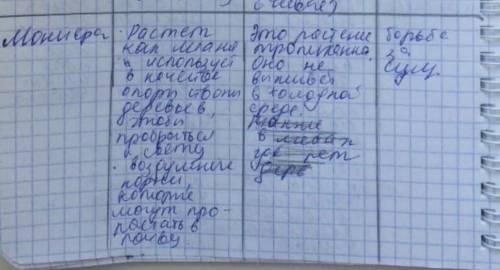 Монстера
· Растет
как лиана
и использует
в качестве
опоры стволы
деревьев,
чтобы
пробраться
к свету
· воздушные
корни,
которые
могут про-
растать в
почву.
Это растение
тропическое
оно не
выживет
в холодной
среде.
в
где нет
борьба
за